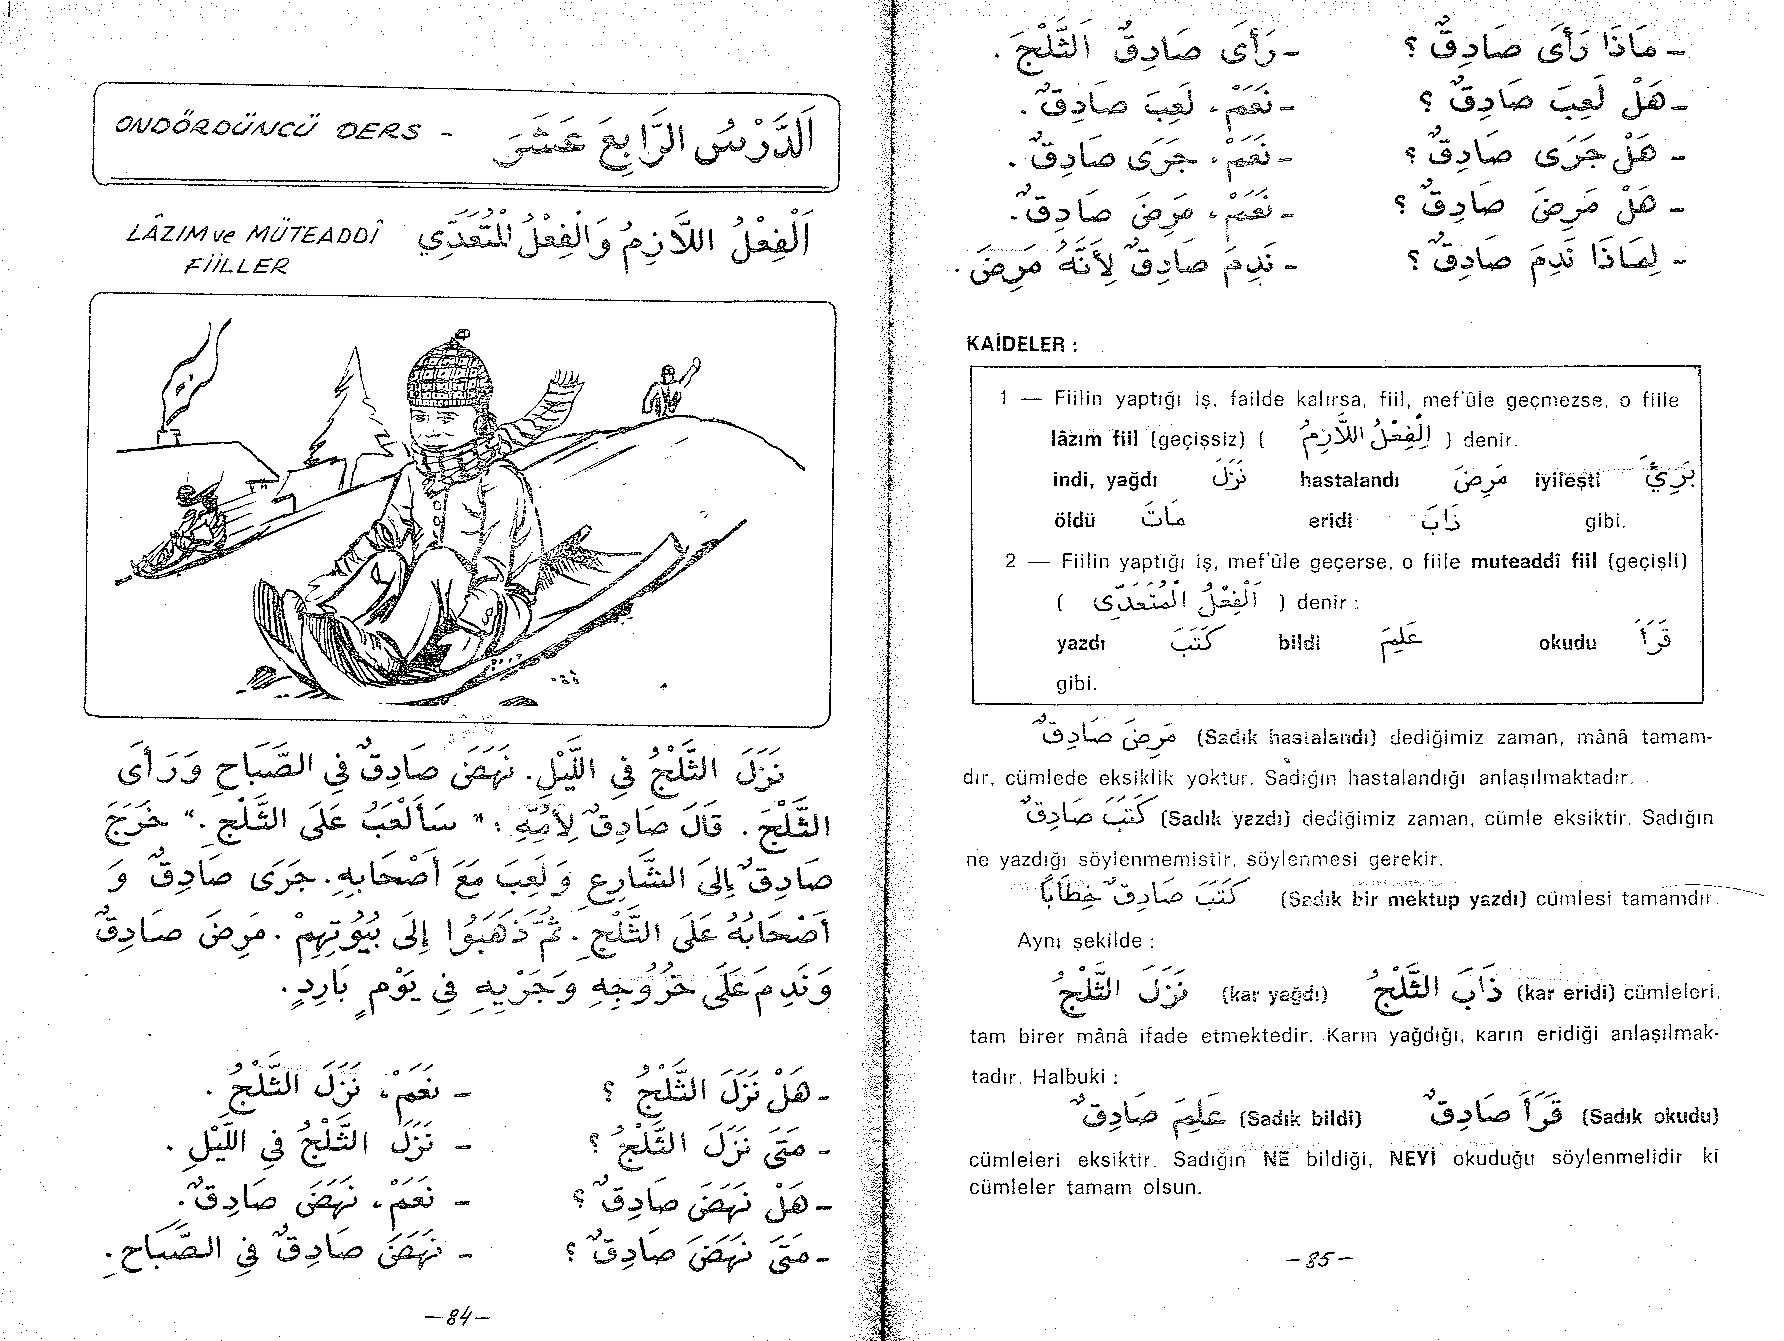 ONDÖRDÜNCÜ DERS - اَلدَّرْسُ الرَّابِعَ عَشَرَ
LÂZIM ve MÜTEADDÎ اَلْفِعْلُ اللاَّزِمُ وَالْفِعْلُ الْمُتَعَدِّي
FİİLLER
نَزَلَ الثَّلْجُ فِي اللَّيْلِ. نَهَضَ صَادِقٌ فِي الصَّبَاحِ وَرَأَى
الثَّلْجَ. قَالَ صَادِقٌ لِأُمِّهِ: "سَأَلْعَبُ عَلَى الثَّلْجِ." خَرَجَ
صَادِقٌ إِلَى الشَّارِعِ وَلَعِبَ مَعَ أَصْحَابِهِ. جَرَى صَادِقٌ وَ
أَصْحَابُهُ عَلَى الثَّلْجِ. ثُمَّ ذَهَبُوا إِلَى بُيُوتِهِمْ. مَرِضَ صَادِقٌ
وَنَدِمَ عَلَى خُرُوجِهِ وَجَرْيِهِ فِي يَوْمٍ بَارِدٍ.
- هَلْ نَزَلَ الثَّلْجُ ؟ - نَعَمْ، نَزَلَ الثَّلْجُ .
- مَتَى نَزَلَ الثَّلْجُ ؟ - نَزَلَ الثَّلْجُ فِي اللَّيْلِ .
- هَلْ نَهَضَ صَادِقٌ ؟ - نَعَمْ، نَهَضَ صَادِقٌ.
- مَتَى نَهَضَ صَادِقٌ ؟ - نَهَضَ صَادِقٌ فِي الصَّبَاحِ.
- 84 -
- مَاذَا رَأَى صَادِقٌ ؟ - رَأَى صَادِقٌ الثَّلْجَ .
- هَلْ لَعِبَ صَادِقٌ ؟ - نَعَمْ، لَعِبَ صَادِقٌ .
- هَلْ جَرَى صَادِقٌ ؟ - نَعَمْ، جَرَى صَادِقٌ .
- هَلْ مَرِضَ صَادِقٌ ؟ - نَعَمْ، مَرِضَ صَادِقٌ.
- لِمَاذَا نَدِمَ صَادِقٌ ؟ - نَدِمَ صَادِقٌ لِأَنَّهُ مَرِضَ.
KAİDELER :
1 — Fiilin yaptığı iş, failde kalırsa, fiil, mef'ûle geçmezse, o fiile
lâzım fiil (geçişsiz) ( اَلْفِعْلُ اللاَّزِمُ ) denir.
indi, yağdı نَزَلَ hastalandı مَرِضَ iyileşti بَرِئَ
öldü مَاتَ eridi ذَابَ gibi.
2 — Fiilin yaptığı iş, mef'ûle geçerse, o fiile muteaddî fiil (geçişli)
( اَلْفِعْلُ الْمُتَعَدِّى ) denir :
yazdı كَتَبَ bildi عَلِمَ okudu قَرَأَ
gibi.
مَرِضَ صَادِقٌ (Sadık hastalandı) dediğimiz zaman, mânâ tamam-
dır, cümlede eksiklik yoktur. Sadığın hastalandığı anlaşılmaktadır.
كَتَبَ صَادِقٌ (Sadık yazdı) dediğimiz zaman, cümle eksiktir. Sadığın
ne yazdığı söylenmemistir, söylenmesi gerekir.
كَتَبَ صَادِقٌ خِطَابًا (Sadık bir mektup yazdı) cümlesi tamamdır.
Aynı şekilde :
نَزَلَ الثَّلْجُ (kar yağdı) ذَابَ الثَّلْجُ (kar eridi) cümleleri,
tam birer mânâ ifade etmektedir. Karın yağdığı, karın eridiği anlaşılmak-
tadır. Halbuki :
عَلِمَ صَادِقٌ (Sadık bildi) قَرَأَ صَادِقٌ (Sadık okudu)
cümleleri eksiktir. Sadığın NE bildiği, NEYİ okuduğu söylenmelidir ki
cümleler tamam olsun.
- 85 -